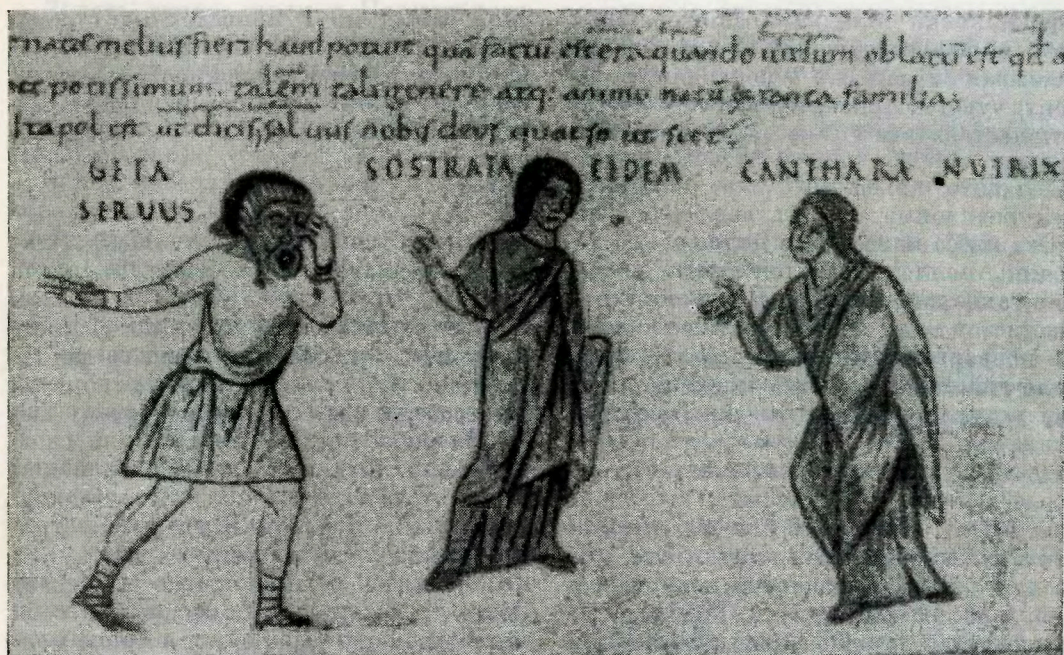 melius fieri haud potuit quā factū est era quando uitium oblatū est qđ
potissimum. talem tali genere atq; animo natū ex tanta familia;
Ita pol est ut dicis saluus nobis deos quaeso ut siet;
GETA SOSTRATA EIDEM CANTHARA NUTRIX
SERUUS